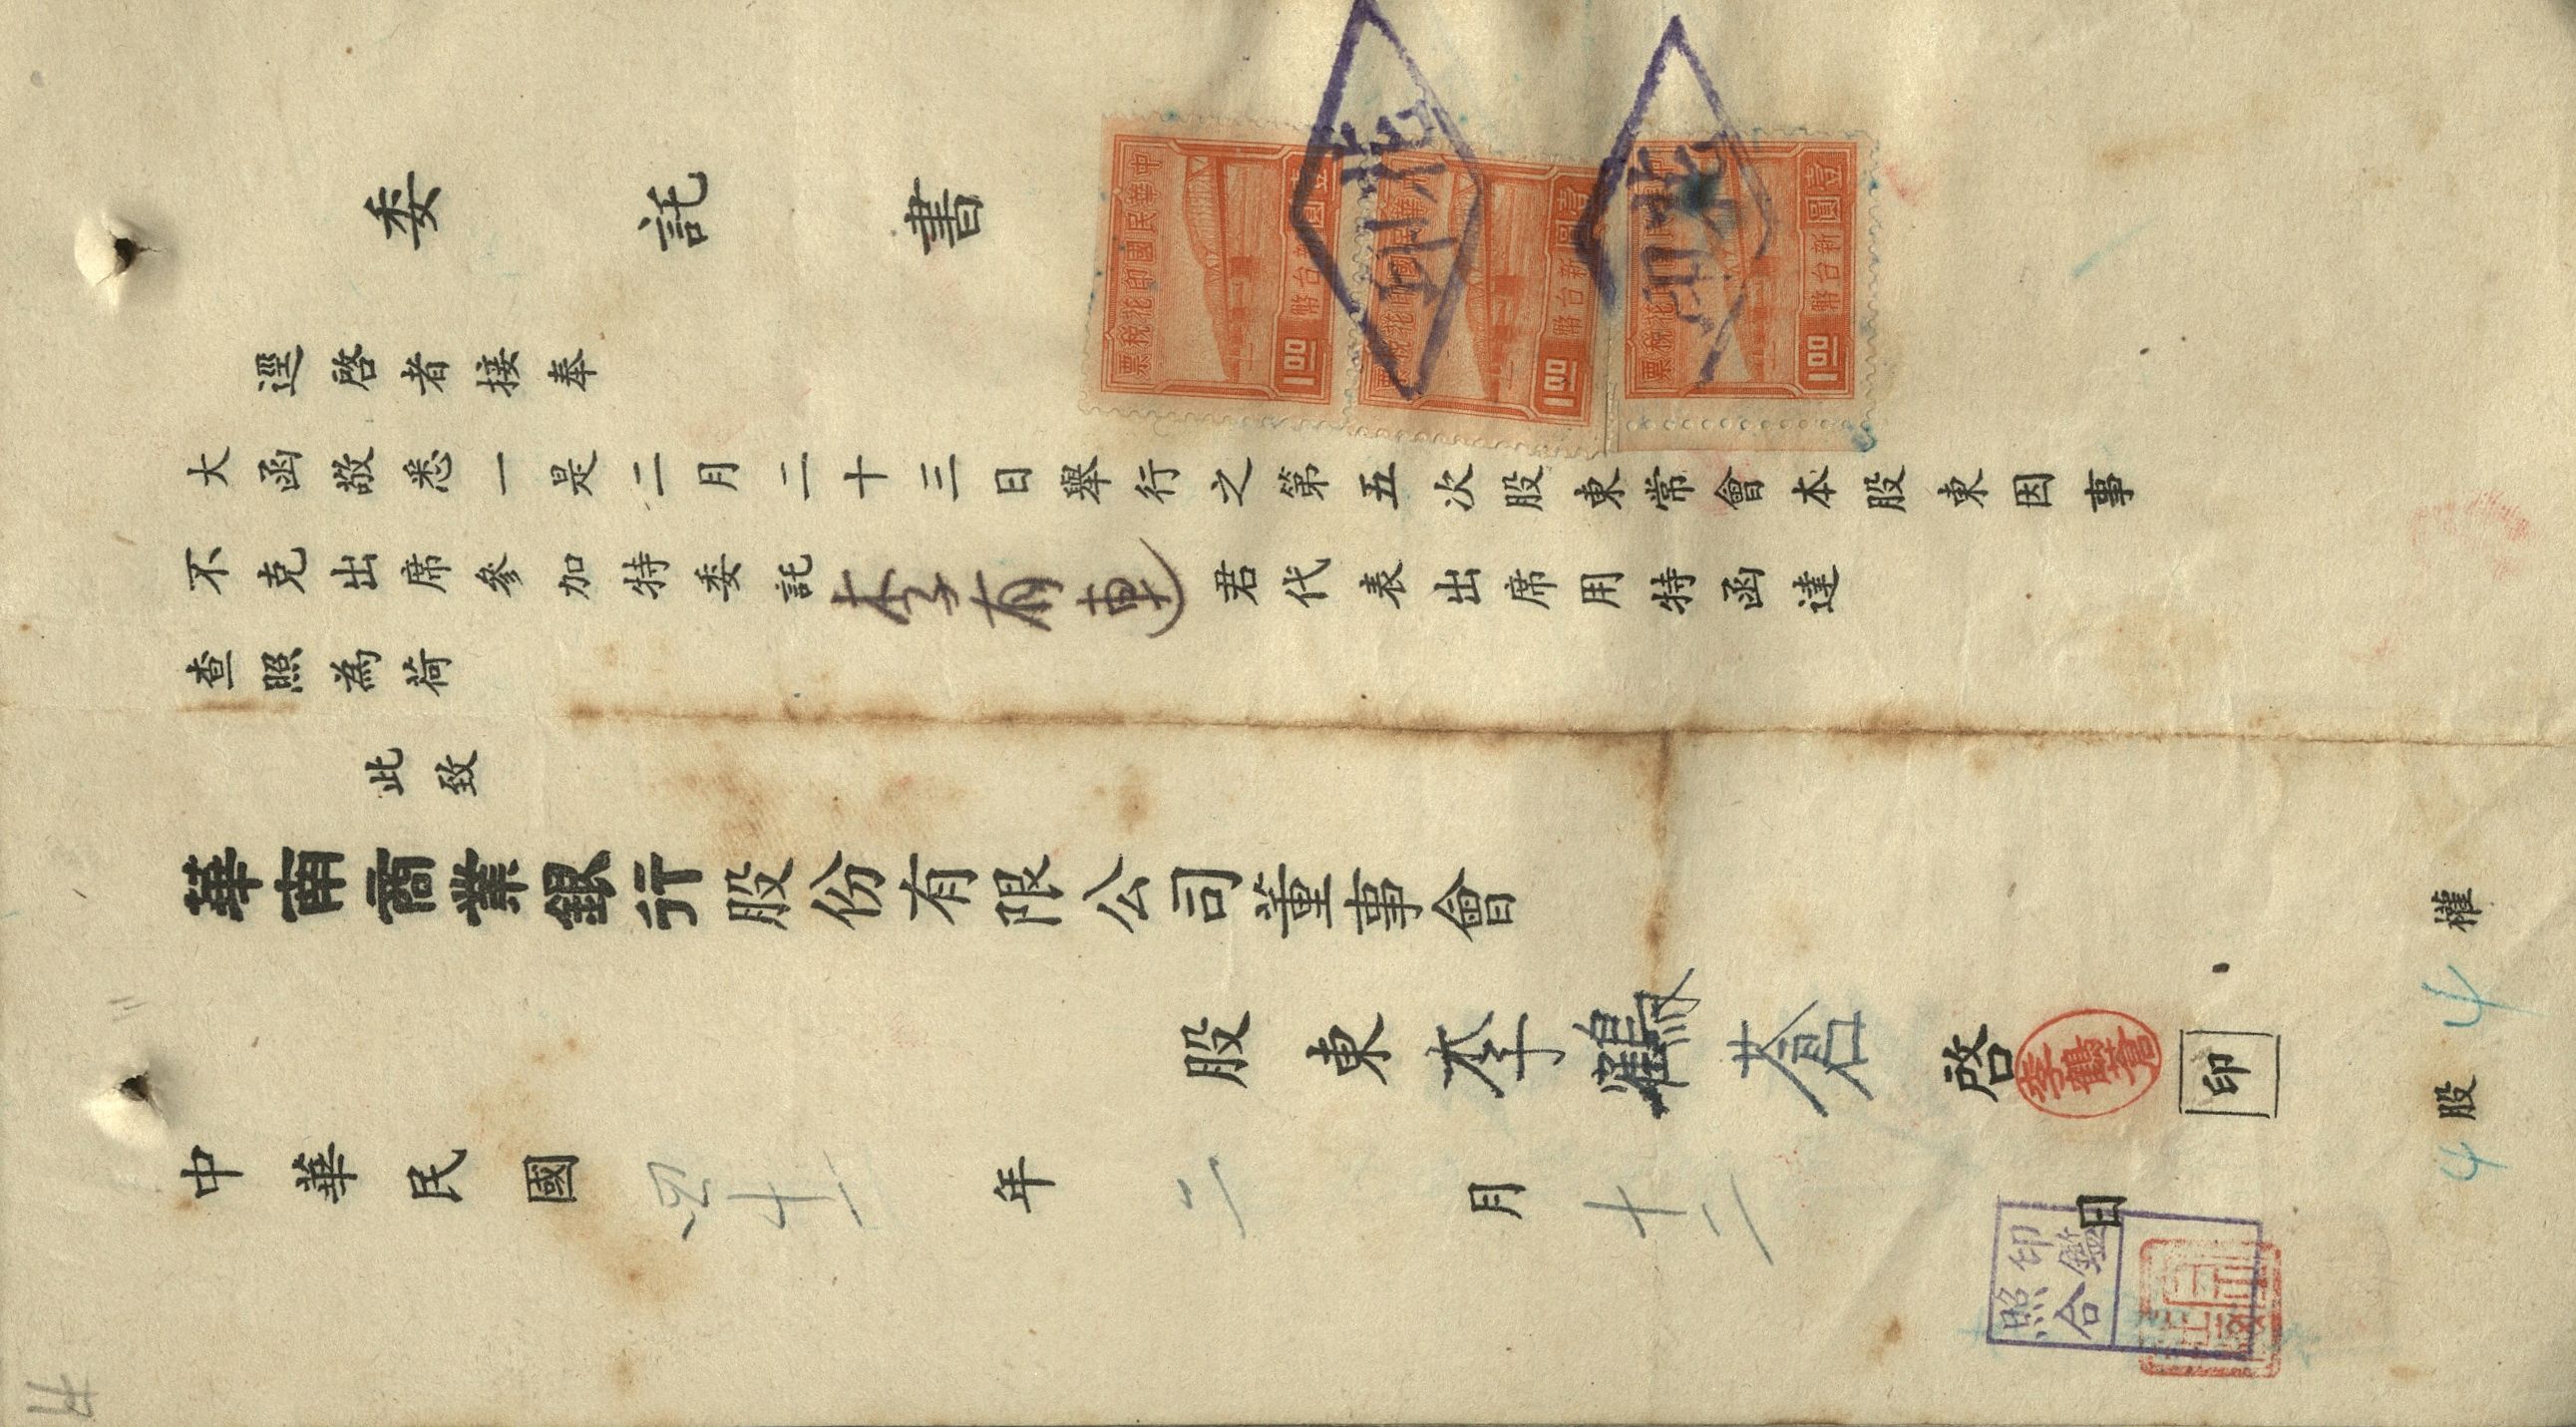 委託書
逕啓者接奉
大函敬悉一是二月二十三日舉行之第五次股東常會本股東因事
不克出席參加特委託李有連君代表出席用特函達
查照為荷
此致
華南商業銀行股份有限公司董事會
股東李鶴蒼啓
李鶴蒼
印
中華民國四十一年二月十二日
4股4權
印鑑
照合
中華民國印花稅票
壹圓新台幣
1.00
中華民國印花稅票
壹圓新台幣
1.00
印花稅票
壹圓新台幣
1.00